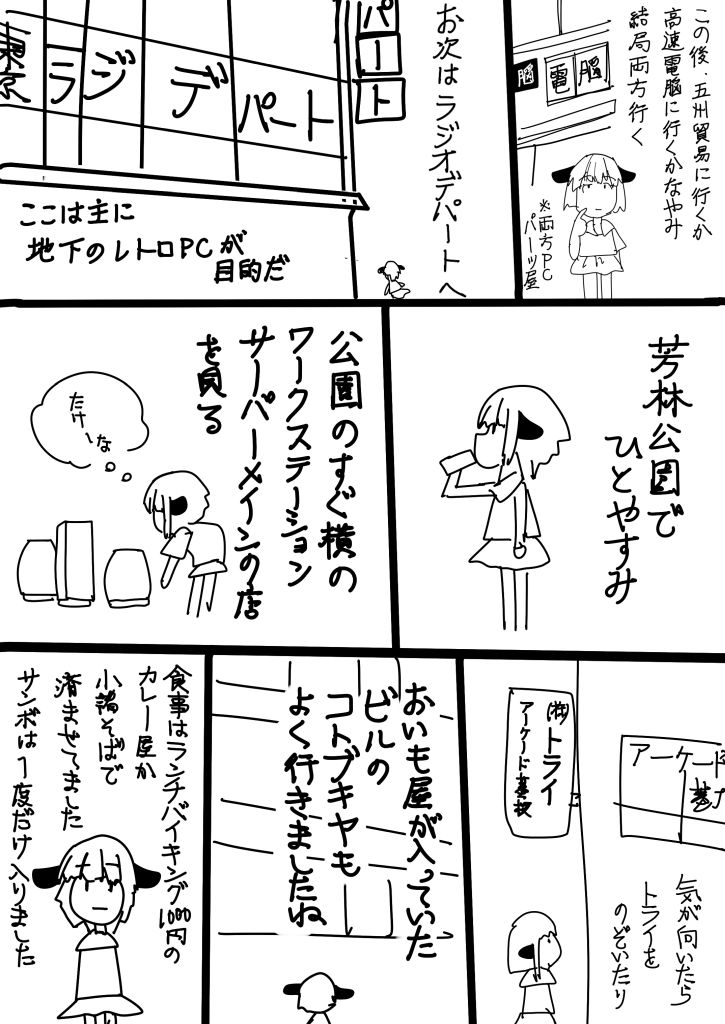 この後、五州貿易に行くか
高速電脳に行くかなやみ
結局両方行く
脳
電脳
※両方PC
パーツ屋
お次はラジオデパートへ
パート
東京
ラジ
デ
パート
ここは主に
地下のレトロPCが
目的だ
芳林公園で
ひとやすみ
公園のすぐ横の
ワークステーション
サーバーメインの店
を見る
たけーな
アーケード
基
㈱トライ
アーケード基板
気が向いたら
トライを
のぞいたり
おいも屋が入っていた
ビルの
コトブキヤも
よく行きましたね
食事はランチバイキング1000円の
カレー屋か
小諸そばで
済ませてました
サンボは1度だけ入りました